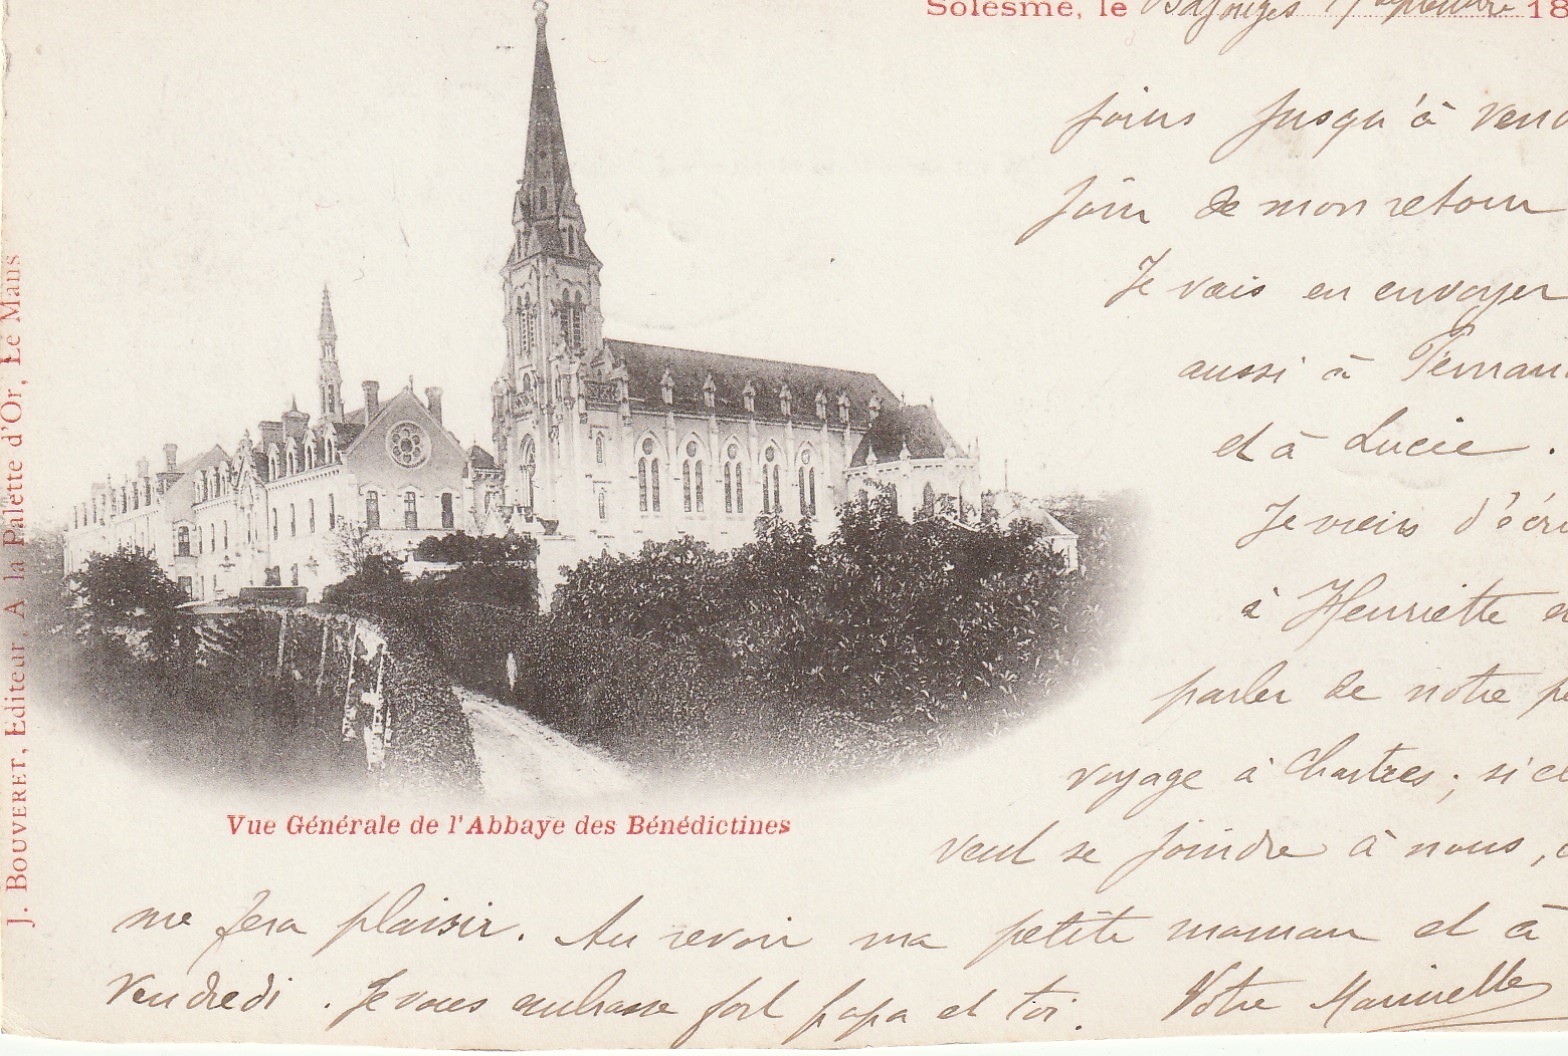 Solesme, le Bazouges 17 septembre 18
jours jusqu'à vend
jour de mon retour
Je vais en envoyer
aussi à
et à Lucie.
Je viens d'écri
à Henriette
parler de notre p
voyage à Chartres; si el
veut se joindre à nous,
me fera plaisir. Au revoir ma petite maman et à
vendredi. Je vous embrasse fort papa et toi. Votre
Vue Générale de l'Abbaye des Bénédictines
J. BOUVERET, Editeur, A la Palette d'Or, Le Mans